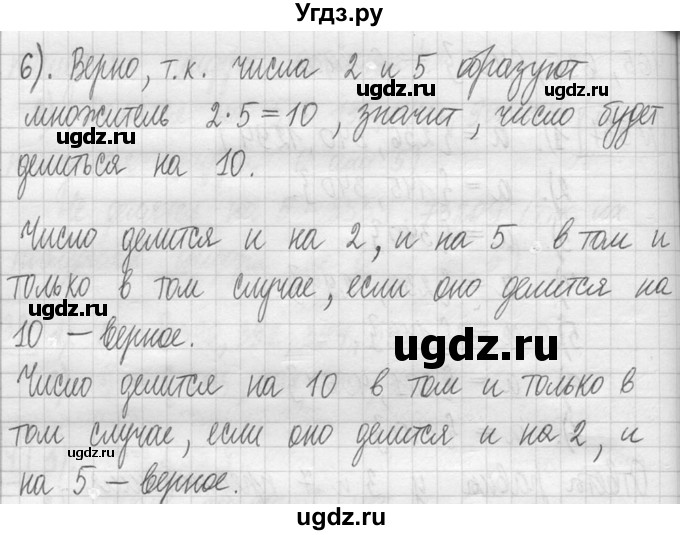 Угдз.ру
6). Верно, т.к. числа 2 и 5 образуют
множитель 2·5=10, значит, число будет
делиться на 10.
Число делится и на 2, и на 5 в том и
только в том случае, если оно делится на
10 – верное.
Число делится на 10 в том и только в
том случае, если оно делится и на 2, и
на 5 – верное.
ugdz.ru
ugdz.ru
ugdz.ru
ugdz.ru
ugdz.ru
ugdz.ru
ugdz.ru
ugdz.ru